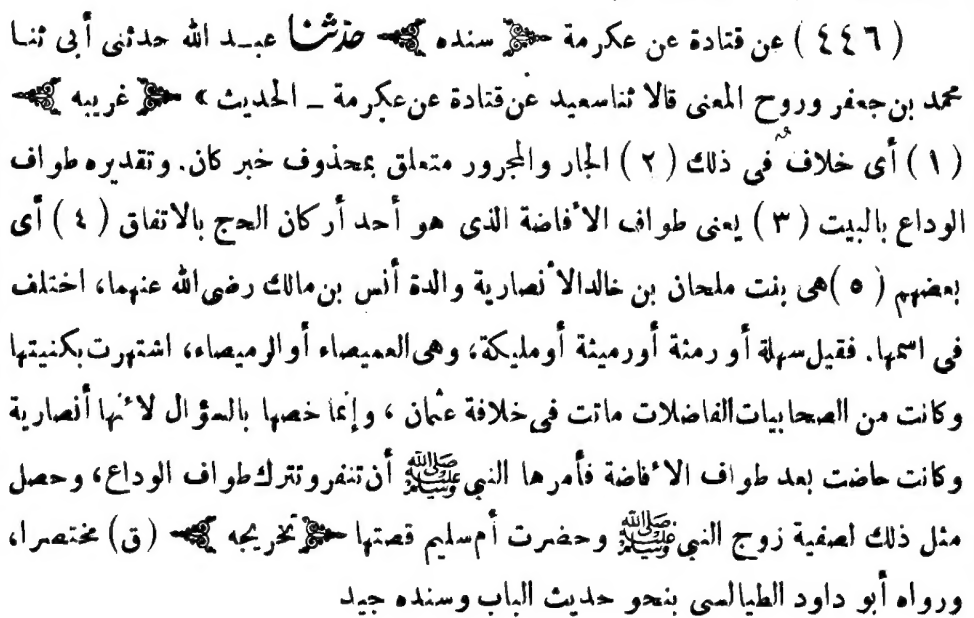 ( ٤٤٦ ) عن قتادة عن عكرمة ﴿ سنده ﴾ حدثنا عبد الله حدثنى أبى ثنا
محمد بن جعفر وروح المعنى قالا ثنا سعيد عن قتادة عن عكرمة ــ الحديث » ﴿ غريبه ﴾
( ١ ) أى خلاف فى ذلك ( ٢ ) الجار والمجرور متعلق بمحذوف خبر كان. وتقديره طواف
الوداع بالبيت ( ٣ ) يعنى طواف الأفاضة الذى هو أحد أركان الحج بالاتفاق ( ٤ ) أى
بعضهم ( ٥ ) هى بنت ملحان بن خالد الأنصارية والدة أنس بن مالك رضى الله عنهما، اختلف
فى اسمها. فقيل سهلة أو رمئة أو رميثة أو مليكة، وهى العميصاء أو الرميصاء، اشتهرت بكنيتها
وكانت من الصحابيات الفاضلات ماتت فى خلافة عثمان ، وإنما خصها بالسؤال لأنها أنصارية
وكانت حاضت بعد طواف الأفاضة فأمرها النبى ﷺ أن تنفر وتترك طواف الوداع، وحصل
مثل ذلك لصفية زوج النبى ﷺ وحضرت أم سليم قصتها ﴿ تخريجه ﴾ (ق) مختصرا،
ورواه أبو داود الطيالسى بنحو حديث الباب وسنده جيد